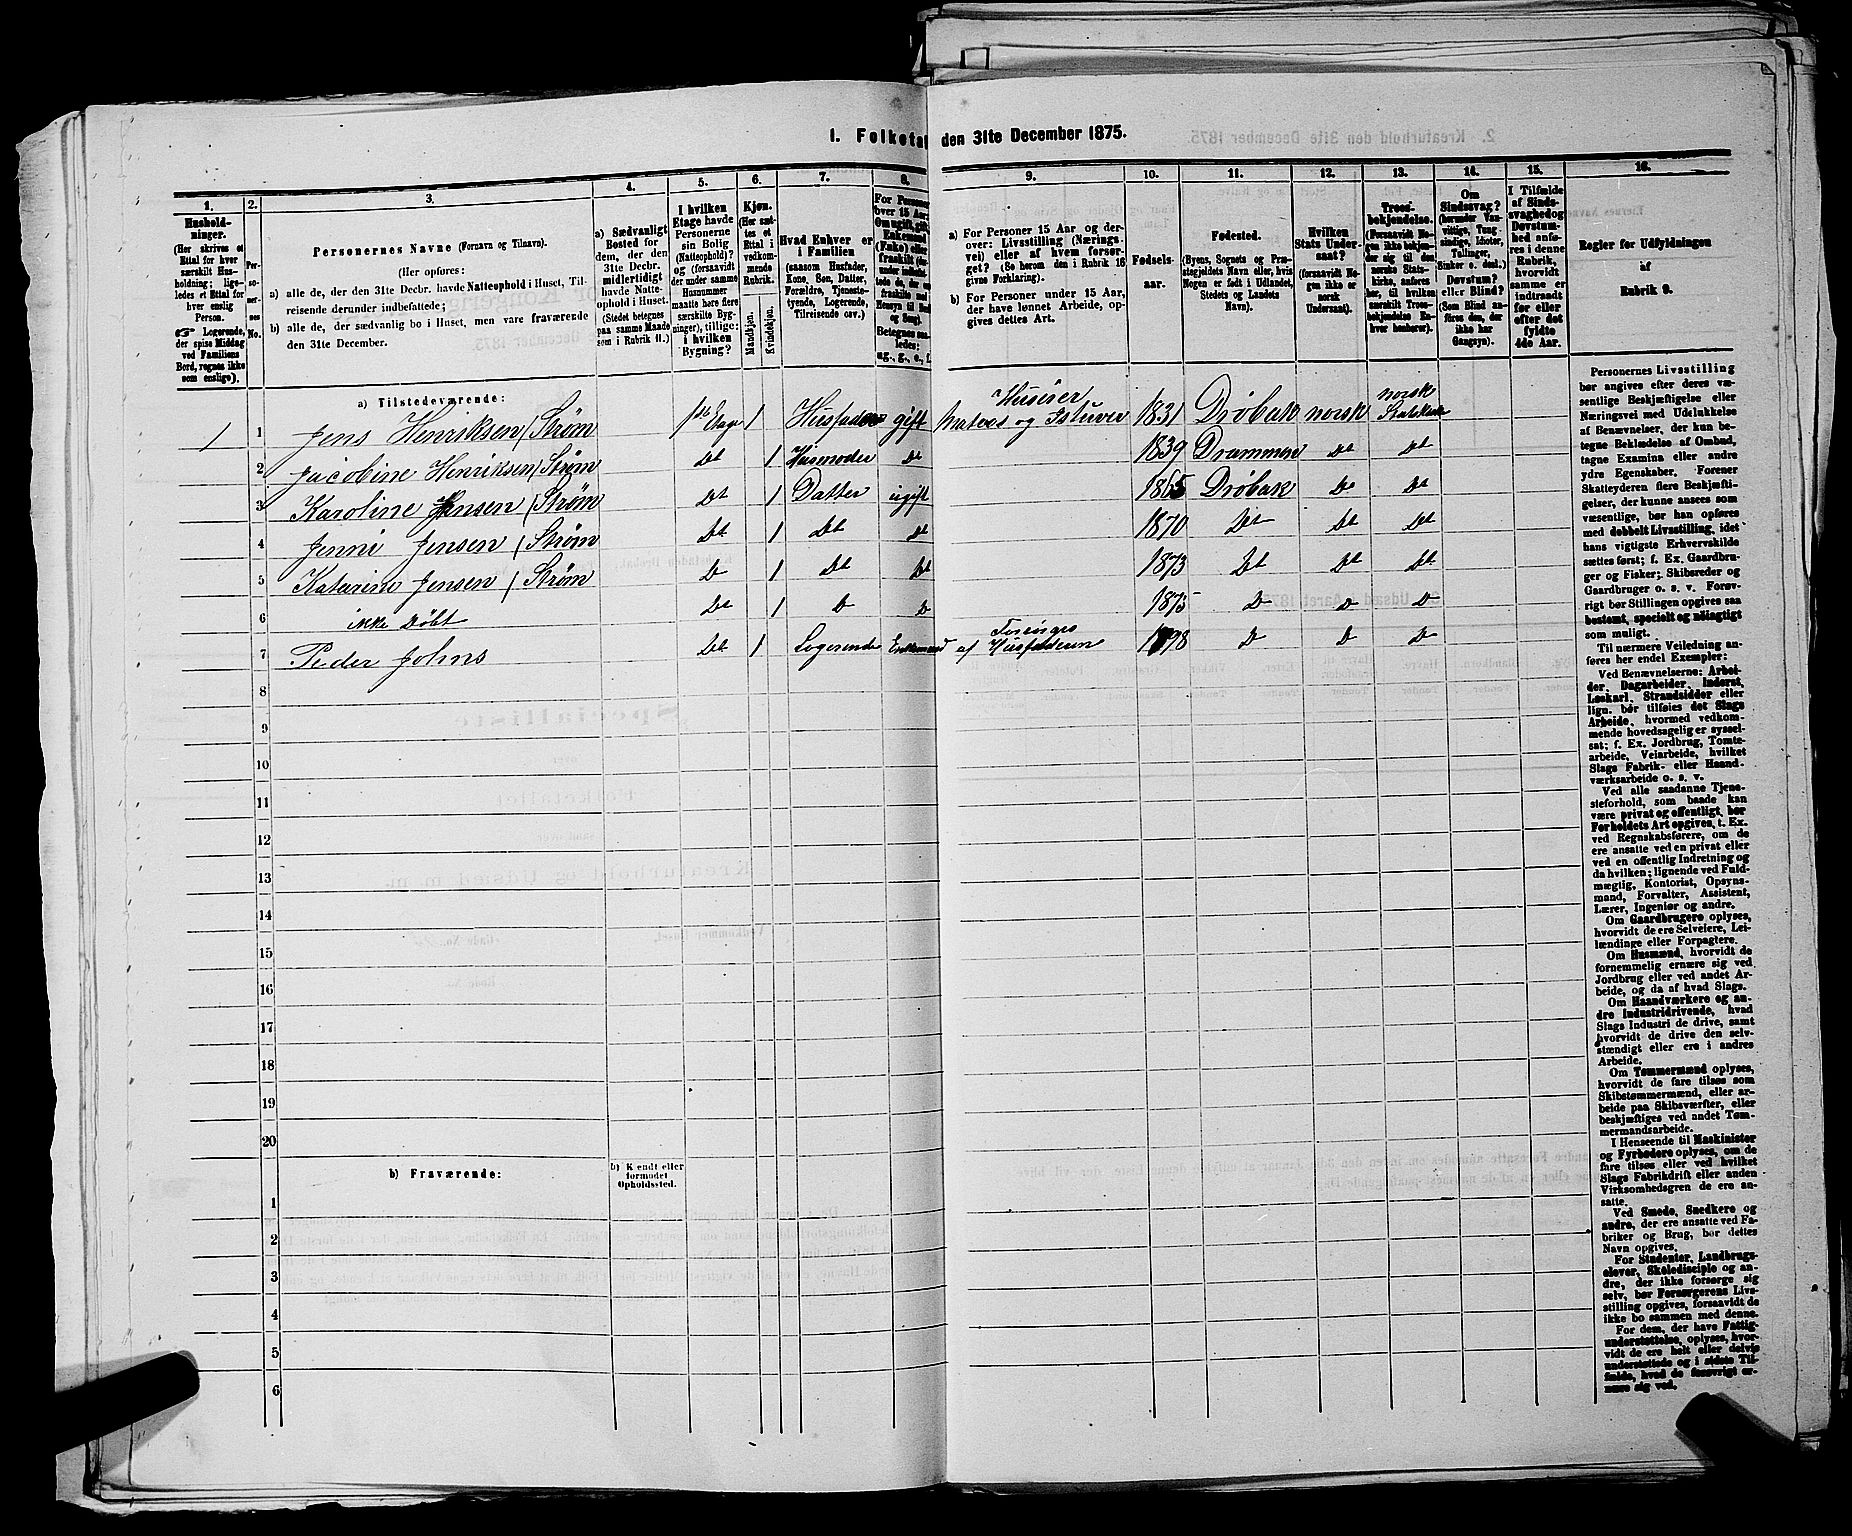 1. Folketa
den 31te December 1875.
1.
2.
3.
4.
5.
6.
7.
8.
9.
10.
11.
12.
13.
14.
15.
16.
Hushold-
ninger.
(Her skrives et
Ettal for hver
særskilt Hus-
holdning; lige-
ledes et Ettal for
hver enslig
Person.
☞ Logerende,
der spise Middag
ved Familiens
Bord, regnes ikke
som enslige).
Per-
soner-
nes
No.
Personernes Navne (Fornavn og Tilnavn).
(Her opføres:
a) alle de, der den 31te Decbr. havde Natteophold i Huset, Til-
reisende derunder indbefattede;
b) alle de, der sædvanlig bo i Huset, men vare fraværende
den 31te December.
a) Sædvanligt
Bosted for
dem, der den
31te Decbr.
midlertidigt
havde Natte-
ophold i Huset.
(Stedet betegnes
paa samme Maade
som i Rubrik 11.)
I hvilken
Etage havde
Personerne
sin Bolig
(Natteophold)?
og (forsaavidt
der under samme
Husnummer
maatte høre flere
særskilte Byg-
ninger), tillige:
i hvilken
Bygning?
Kjøn.
(Her sæt-
tes et
Ettal i
vedkom-
mende
Rubrik.
Mandkjøn.
Kvindekjøn.
Hvad Enhver er
i Familien
(saasom Husfader,
Kone, Søn, Datter,
Forældre, Tjeneste-
tyende, Logerende,
Tilreisende osv.)
For Persone
over 15 Aar:
Om ugift, gift,
Enkemand
(Enke) eller
fraskilt
Betegnes saa-
ledes:
ug., g., e., f.
a) For Personer 15 Aar og der-
over: Livsstilling (Nærings-
vei) eller af hvem forsør-
get? (Se herom den i Rubrik 16
givne Forklaring).
b) For Personer under 15 Aar,
der have lønnet Arbeide, op-
gives dettes Art.
Fødsels-
aar.
Fødested.
(Byens, Sognets og Præ-
stegjeldets Navn eller, hvis
Nogen er født i Udlandet,
Stedets og Landets
Navn).
Hvilken
Stats Under-
saat?
(forsaavidt No-
gen ikke er
norsk
Undersaat).
Troes-
bekjendelse.
(Forsaavidt No-
gen ikke bekjen-
der sig til den
norske Stats-
kirke, anføres
her, til hvilken
særskilt Troes-
bekjendelse En-
hver henhører).
Om
Sindssvag?
(herunder Van-
vittige, Tung-
sindige, Idioter,
Tullinger,
Sinker o. desl.)
Døvstum?
eller Blind?
(Som Blind an-
føres den, der
ikke har
Gangsyn).
I Tilfælde
af Sinds-
svaghed og
Døvstum-
hed anfø-
res i denne
Rubrik,
hvorvidt
samme er
indtraadt
før eller
efter det
fyldte
4de Aar.
Regler for Udfyldningen
af
Rubrik 9.
a) Tilstedeværende:
1 1 Jens Henriksen / Strøm 1ste Etage 1 Husfader gift Huseier Matros og Istuver 1831 Drøbak norsk norsk Statskirk
2 Jacobine Henriksen / Strøm Dt 1 Husmoder D 1839 Drammen Dt Dt
3 Karoline Jensen / Strøm Dt 1 Datter ugift 1865 Drøbak D Dt
4 Jenni Jensen / Strøm Dt 1 Dt D 1870 Dt Dt Dt
5 Katarine Jensen / Strøm D 1 Dt Dt 1873 Dt Dt Dt
6 ikke Døbt Dt 1 D D 1875 D D D
7 Peder Johns Dt 1 Logerende Enkemand Forsørges af Husfaderen 1798 D D D
8
9
10
11
12
13
14
15
16
17
18
19
20
b) Fraværende:
b) Kjendt eller
formodet
Opholdssted.
1
2
3
4
5
6
Personernes Livsstilling
bør angives efter deres væ-
sentlige Beskjæftigelse eller
Næringsvei med Udelukkelse
af Benævnelser, der kun be-
tegne Beklædelse af Ombud,
tagne Examina eller andre
ydre Egenskaber. Forener
Skatteyderen flere Beskjæfti-
gelser, der kunne ansees som
væsentlige, bør han opføres
med dobbelt Livsstilling, idet
hans vigtigste Erhvervskilde
sættes først; f. Ex. Gaardbru-
ger og Fisker; Skibsreder og
Gaardbruger o. s. v. Forøv-
rigt bør Stillingen opgives saa
bestemt, specielt og nøiagtigt
som muligt.
Til nærmere Veiledning an-
føres her endel Exempler:
Ved Benævnelserne: Arbei-
der, Dagarbeider, Inderst,
Løskarl, Strandsidder eller
lign. bør tilføies det Slags
Arbeide, hvormed vedkom-
mende hovedsagelig er syssel-
sat; f. Ex. Jordbrug, Tomte-
arbeide, Veiarbeide, hvilket
Slags Fabrik- eller Haand-
værksarbeide o. s. v.
Ved alle saadanne Tjene-
steforhold, som baade kan
være privat og offentligt, bør
Forholdets Art opgives, t. Ex.
ved Regnskabsførere, om de
ere ansatte ved en privat eller
ved en offentlig Indretning og
da hvilken; lignende ved Fuld-
mægtig, Kontorist, Opsyns-
mand, Forvalter, Assistent,
Lærer, Ingeniør og andre.
Om Gaardbrugere oplyses,
hvorvidt de ere Selveiere, Lei-
lændinge eller Forpagtere.
Om Husmænd, hvorvidt de
fornemmelig ernære sig ved
Jordbrug eller ved andet Ar-
beide, og da af hvad Slags.
Om Haandværkere og an-
dre Industridrivende, hvad
Slags Industri de drive, samt
hvorvidt de drive den selv-
stændigt eller ere i andres
Arbeide.
Om Tømmermænd oplyses,
hvorvidt de fare tilsøs som
Skibstømmermænd, eller ar-
beide paa Skibsværfter, eller
beskjæftiges ved andet Tøm-
mermandsarbeide.
I Henseende til Maskinister
og Fyrbødere oplyses, om de
fare tilsøs eller ved hvilket
Slags Fabrikdrift eller anden
Virksomhedsgren de ere an-
satte.
Ved Smede, Snedkere og
andre, der ere ansatte ved Fa-
briker og Brug, bør dettes
Navn opgives.
For Studenter, Landbrugs-
elever, Skoledisciple og an-
dre, der ikke forsørge sig
selv, bør Forsørgerens Livs-
stilling opgives, forsaavidt de
ikke bo sammen med denne.
For dem, der have Fattig-
understøttelse, oplyses, hvor-
vidt de ere helt eller delvis
understøttede og i sidste Til-
fælde, hvad de forøvrigt er-
nære sig ved.